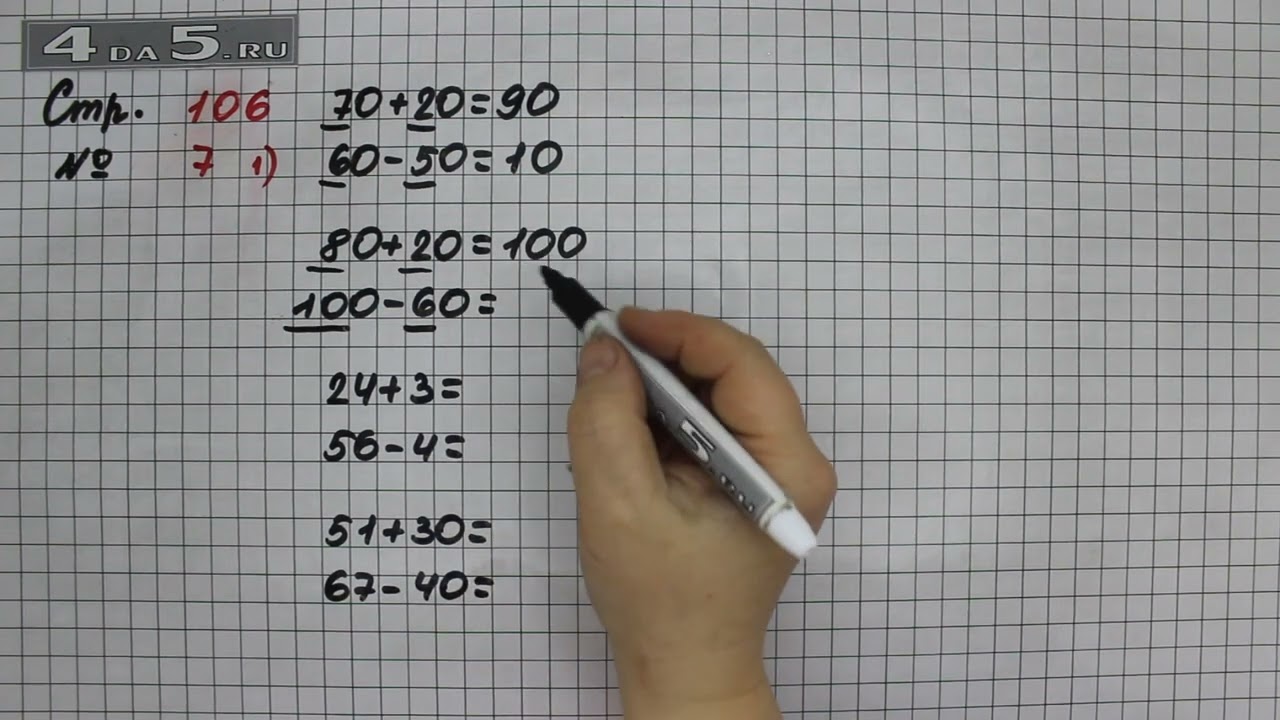 4 DA 5.RU
Стр. 106 70+20=90
№ 7 1) 60-50=10
80+20=100
100-60=
24+3=
56-4=
51+30=
67-40=
5.RU